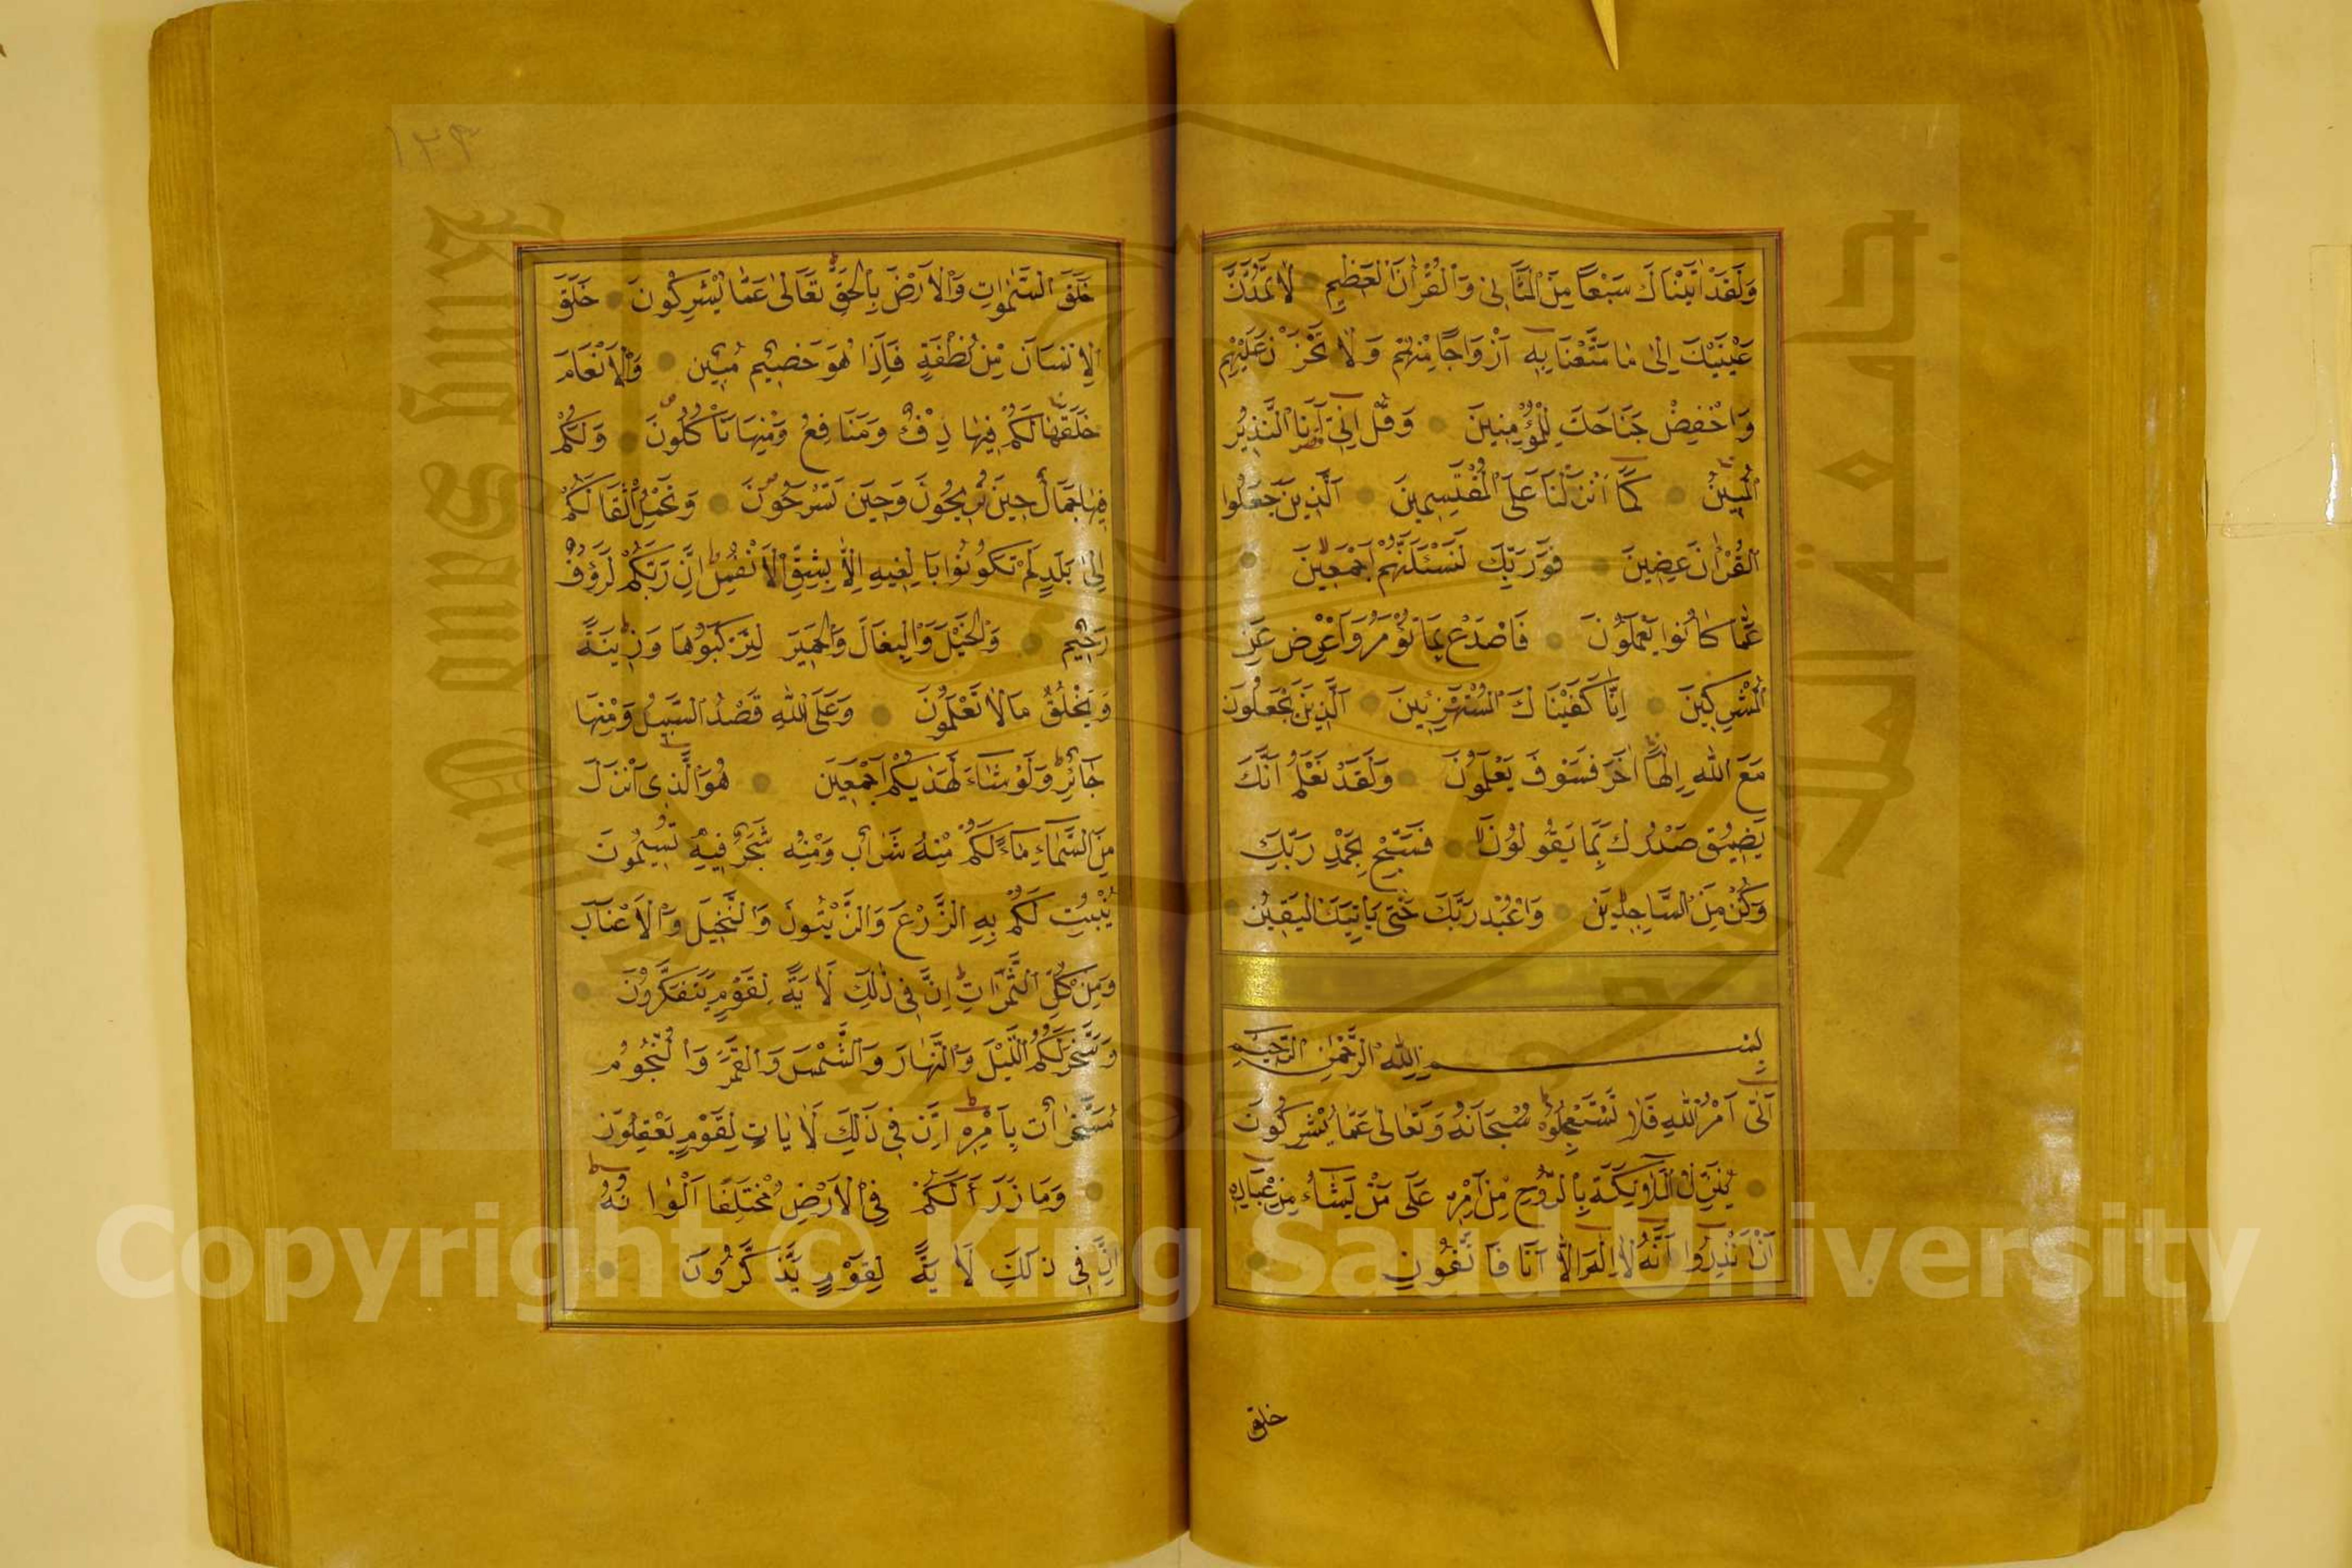 وَلَقَدْ اٰتَيْنَاكَ سَبْعًا مِنَ الْمَثَانِى وَالْقُرْاٰنَ الْعَظِيمِ لَا تَمُدَّنَّ
عَيْنَيْكَ اِلٰى مَا مَتَّعْنَا بِهِ اَزْوَاجًا مِنْهُمْ وَلَا تَحْزَنْ عَلَيْهِمْ
وَاخْفِضْ جَنَاحَكَ لِلْمُؤْمِنِينَ وَقُلْ اِنِّى اَنَا النَّذِيرُ
الْمُبِينُ كَمَا اَنْزَلْنَا عَلَى الْمُقْتَسِمِينَ اَلَّذِينَ جَعَلُوا
الْقُرْاٰنَ عِضِينَ فَوَرَبِّكَ لَنَسْئَلَنَّهُمْ اَجْمَعِينَ
عَمَّا كَانُوا يَعْمَلُونَ فَاصْدَعْ بِمَا تُؤْمَرُ وَاَعْرِضْ عَنِ
الْمُشْرِكِينَ اِنَّا كَفَيْنَاكَ الْمُسْتَهْزِئِينَ اَلَّذِينَ يَجْعَلُونَ
مَعَ اللّٰهِ اِلٰهًا اٰخَرَ فَسَوْفَ يَعْلَمُونَ وَلَقَدْ نَعْلَمُ اَنَّكَ
يَضِيقُ صَدْرُكَ بِمَا يَقُولُونَ فَسَبِّحْ بِحَمْدِ رَبِّكَ
وَكُنْ مِنَ السَّاجِدِينَ وَاعْبُدْ رَبَّكَ حَتّٰى يَأْتِيَكَ الْيَقِينُ
بِسْمِ اللّٰهِ الرَّحْمٰنِ الرَّحِيمِ
اَتٰى اَمْرُ اللّٰهِ فَلَا تَسْتَعْجِلُوهُ سُبْحَانَهُ وَتَعَالٰى عَمَّا يُشْرِكُونَ
يُنَزِّلُ الْمَلٰۤئِكَةَ بِالرُّوحِ مِنْ اَمْرِهِ عَلٰى مَنْ يَشَاءُ مِنْ عِبَادِهِ
اَنْ اَنْذِرُوا اَنَّهُ لَا اِلٰهَ اِلَّا اَنَا فَاتَّقُونِ
خلق
خَلَقَ السَّمٰوَاتِ وَالْاَرْضَ بِالْحَقِّ تَعَالٰى عَمَّا يُشْرِكُونَ خَلَقَ
الْاِنْسَانَ مِنْ نُطْفَةٍ فَاِذَا هُوَ خَصِيمٌ مُبِينٌ وَالْاَنْعَامَ
خَلَقَهَا لَكُمْ فِيهَا دِفْءٌ وَمَنَافِعُ وَمِنْهَا تَأْكُلُونَ وَلَكُمْ
فِيهَا جَمَالٌ حِينَ تُرِيحُونَ وَحِينَ تَسْرَحُونَ وَتَحْمِلُ اَثْقَالَكُمْ
اِلٰى بَلَدٍ لَمْ تَكُونُوا بَالِغِيهِ اِلَّا بِشِقِّ الْاَنْفُسِ اِنَّ رَبَّكُمْ لَرَؤُفٌ
رَحِيمٌ وَالْخَيْلَ وَالْبِغَالَ وَالْحَمِيرَ لِتَرْكَبُوهَا وَزِينَةً
وَيَخْلُقُ مَا لَا تَعْلَمُونَ وَعَلَى اللّٰهِ قَصْدُ السَّبِيلِ وَمِنْهَا
جَائِرٌ وَلَوْ شَاءَ لَهَدٰيكُمْ اَجْمَعِينَ هُوَ الَّذِى اَنْزَلَ
مِنَ السَّمَاءِ مَاءً لَكُمْ مِنْهُ شَرَابٌ وَمِنْهُ شَجَرٌ فِيهِ تُسِيمُونَ
يُنْبِتُ لَكُمْ بِهِ الزَّرْعَ وَالزَّيْتُونَ وَالنَّخِيلَ وَالْاَعْنَابَ
وَمِنْ كُلِّ الثَّمَرَاتِ اِنَّ فِى ذٰلِكَ لَاٰيَةً لِقَوْمٍ يَتَفَكَّرُونَ
وَسَخَّرَ لَكُمُ اللَّيْلَ وَالنَّهَارَ وَالشَّمْسَ وَالْقَمَرَ وَالنُّجُومُ
مُسَخَّرَاتٌ بِاَمْرِهِ اِنَّ فِى ذٰلِكَ لَاٰيَاتٍ لِقَوْمٍ يَعْقِلُونَ
وَمَا ذَرَاَ لَكُمْ فِى الْاَرْضِ مُخْتَلِفًا اَلْوَانُهُ
اِنَّ فِى ذٰلِكَ لَاٰيَةً لِقَوْمٍ يَذَّكَّرُونَ
١٢٩
Copyright © King Saud University